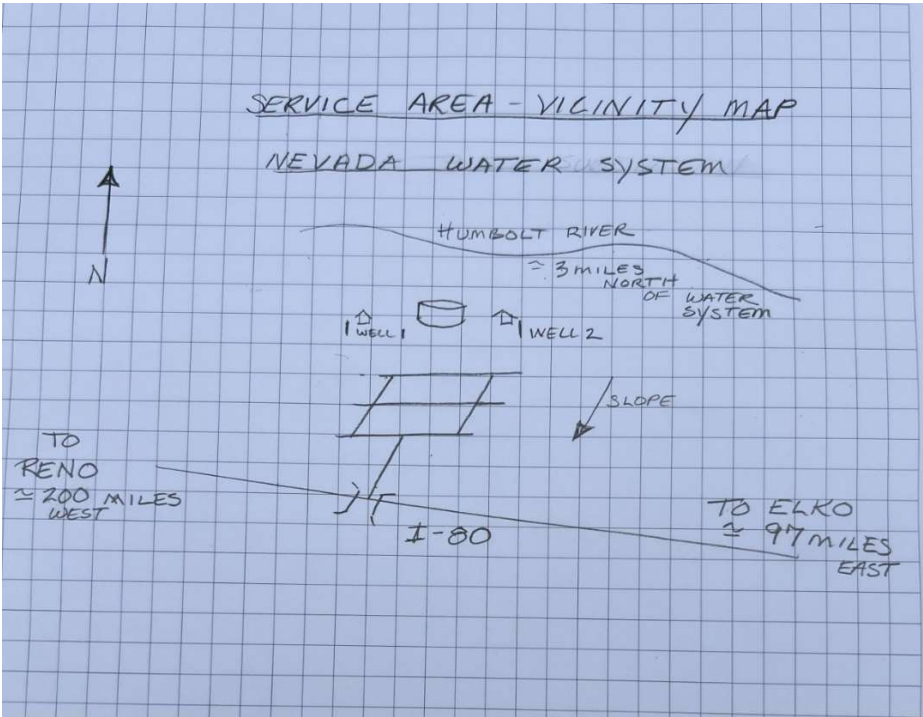 SERVICE AREA - VICINITY MAP
NEVADA WATER SYSTEM
N
HUMBOLT RIVER
≃ 3 MILES
NORTH
OF WATER
SYSTEM
WELL 1
WELL 2
SLOPE
TO
RENO
≃ 200 MILES
WEST
I-80
TO ELKO
≃ 97 MILES
EAST